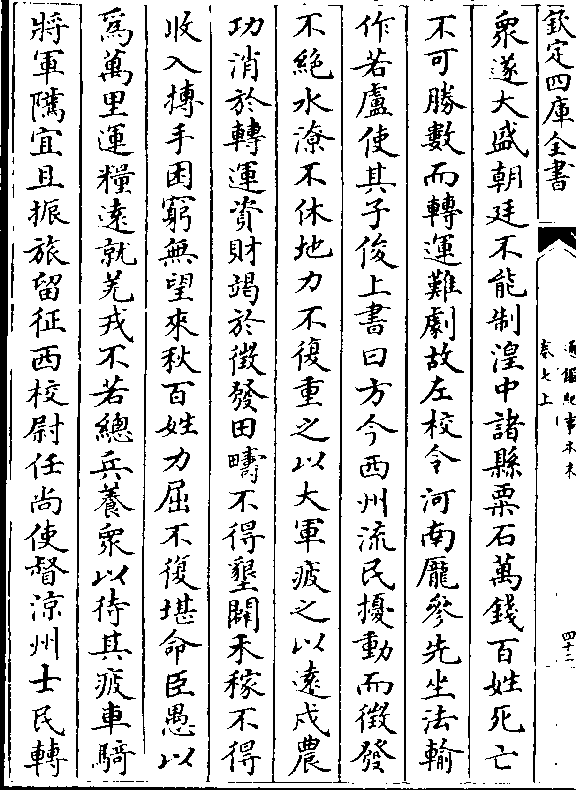 欽定四庫全書
通鑑紀事本末
卷七上
四十二
衆遂大盛朝廷不能制湟中諸縣粟石萬錢百姓死亡
不可勝數而轉運難劇故左校令河南龎參先坐法輸
作若盧使其子俊上書曰方今西州流民擾動而徵發
不絶水潦不休地力不復重之以大軍疲之以遠戍農
功消於轉運資財竭於徵發田疇不得墾闢禾稼不得
收入搏手困窮無望來秋百姓力屈不復堪命臣愚以
爲萬里運糧遠就羌戎不若總兵養衆以待其疲車騎
將軍隲宜且振旅留征西校尉任尚使督涼州士民轉